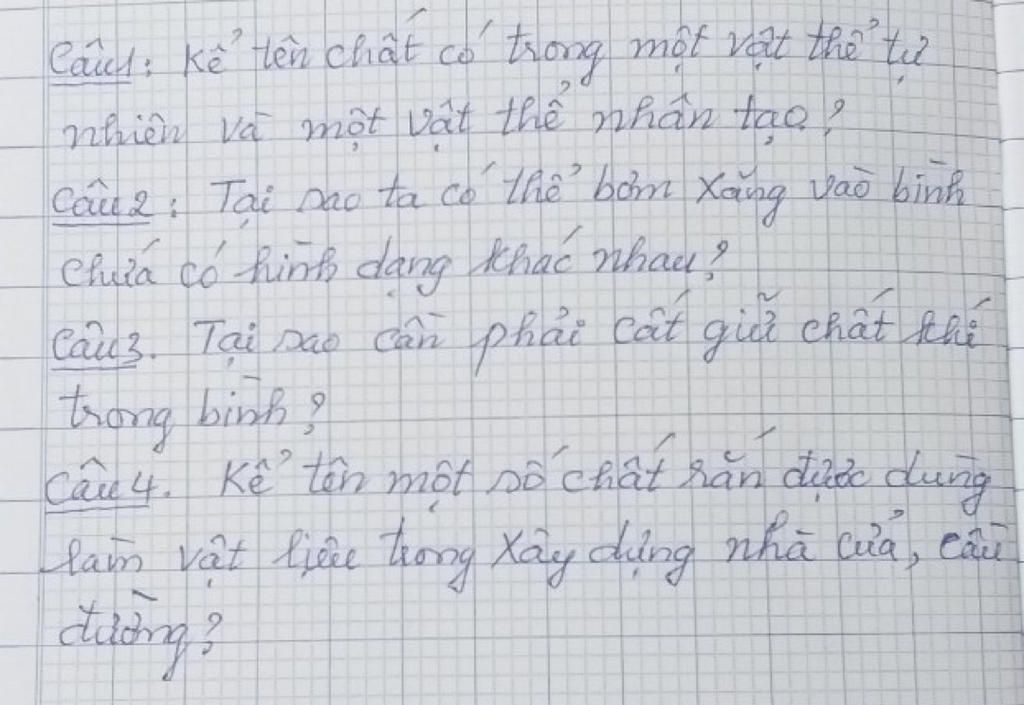 Câu1: Kể tên chất có trong một vật thể tự
nhiên và một vật thể nhân tạo?
Câu2: Tại sao ta có thể bơm xăng vào bình
chứa có hình dạng khác nhau?
Câu3. Tại sao cần phải cất giữ chất khí
trong bình?
Câu4. Kể tên một số chất rắn được dùng
làm vật liệu trong xây dựng nhà cửa, cầu
đường?